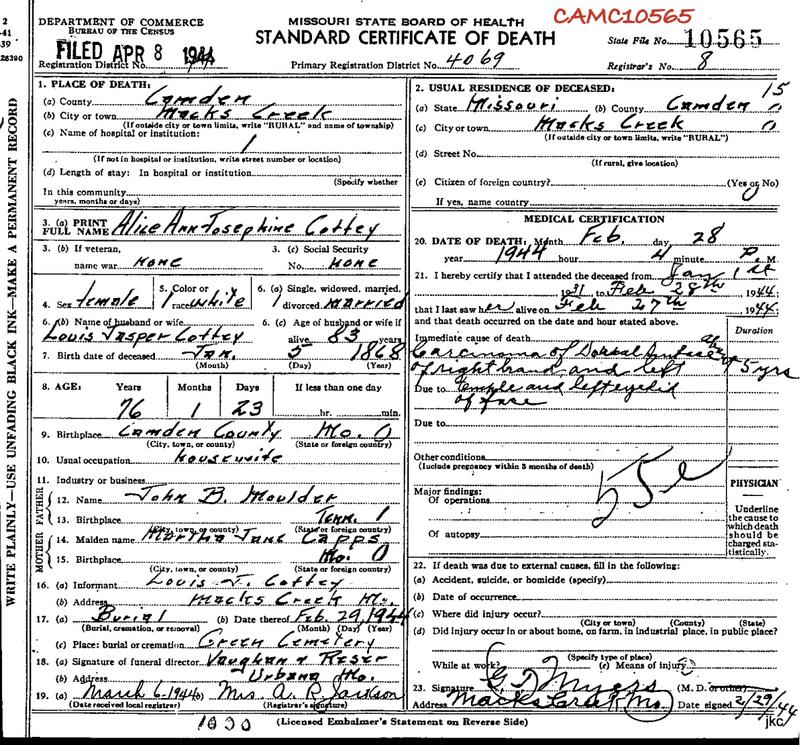 2
-41
-39
26390
DEPARTMENT OF COMMERCE
BUREAU OF THE CENSUS
MISSOURI STATE BOARD OF HEALTH
CAMC10565
STANDARD CERTIFICATE OF DEATH
State File No. 10565
FILED APR 8 1944
Registration District No.
Primary Registration District No. 4069
Registrar's No. 8
WRITE PLAINLY—USE UNFADING BLACK INK—MAKE A PERMANENT RECORD
1. PLACE OF DEATH:
(a) County Camden
(b) City or town Macks Creek
(If outside city or town limits, write "RURAL" and name of township)
(c) Name of hospital or institution:
(If not in hospital or institution, write street number or location)
(d) Length of stay: In hospital or institution
(Specify whether
In this community
years, months or days)
3. (a) PRINT FULL NAME Alice Ann Josephine Cottey
3. (b) If veteran, name war None
3. (c) Social Security No. None
4. Sex Female
5. Color or race White
6. (a) Single, widowed, married, divorced Married
6. (b) Name of husband or wife Louis Jasper Cottey
6. (c) Age of husband or wife if alive 83 years
7. Birth date of deceased Jan. 5 1868
(Month) (Day) (Year)
8. AGE: Years Months Days If less than one day
76 1 23 hr. min.
9. Birthplace Camden County Mo. 0
(City, town, or county) (State or foreign country)
10. Usual occupation Housewife
11. Industry or business
FATHER
12. Name John B. Moulder
13. Birthplace Tenn. 1
(City, town, or county) (State or foreign country)
MOTHER
14. Maiden name Martha Jane Capps
15. Birthplace Mo. 0
(City, town, or county) (State or foreign country)
16. (a) Informant Louis J. Cottey
(b) Address Macks Creek Mo.
17. (a) Burial (b) Date thereof Feb. 29, 1944
(Burial, cremation, or removal) (Month) (Day) (Year)
(c) Place: burial or cremation Green Cemetery
18. (a) Signature of funeral director Vaughan & Reser
(b) Address Urbana Mo.
19. (a) March 6-1944 (b) Mrs. A. R. Jackson
(Date received local registrar) (Registrar's signature)
2. USUAL RESIDENCE OF DECEASED: 15
(a) State Missouri (b) County Camden 0
(c) City or town Macks Creek 0
(If outside city or town limits, write "RURAL")
(d) Street No.
(If rural, give location)
(e) Citizen of foreign country? (Yes or No)
If yes, name country 0
MEDICAL CERTIFICATION
20. DATE OF DEATH: Month Feb. day 28
year 1944 hour 4 minute P. M.
21. I hereby certify that I attended the deceased from Jan 1st
1931 to Feb 28th 1944:
that I last saw her alive on Feb 27th 1944:
and that death occurred on the date and hour stated above.
Duration
Immediate cause of death
Carcinoma of Dorsal surface of
of right hand and left 5 yrs
Due to temple and left eyelid
of face
Due to
Other conditions
(Include pregnancy within 3 months of death)
Major findings:
Of operations
Of autopsy
PHYSICIAN
Underline the cause to which death should be charged statistically.
22. If death was due to external causes, fill in the following:
(a) Accident, suicide, or homicide (specify)
(b) Date of occurrence
(c) Where did injury occur?
(City or town) (County) (State)
(d) Did injury occur in or about home, on farm, in industrial place, in public place?
(Specify type of place)
While at work? (e) Means of injury
23. Signature G D Myers (M. D. or other)
Address Macks Creek Mo. Date signed 2/29/44
jkc
1030
(Licensed Embalmer's Statement on Reverse Side)